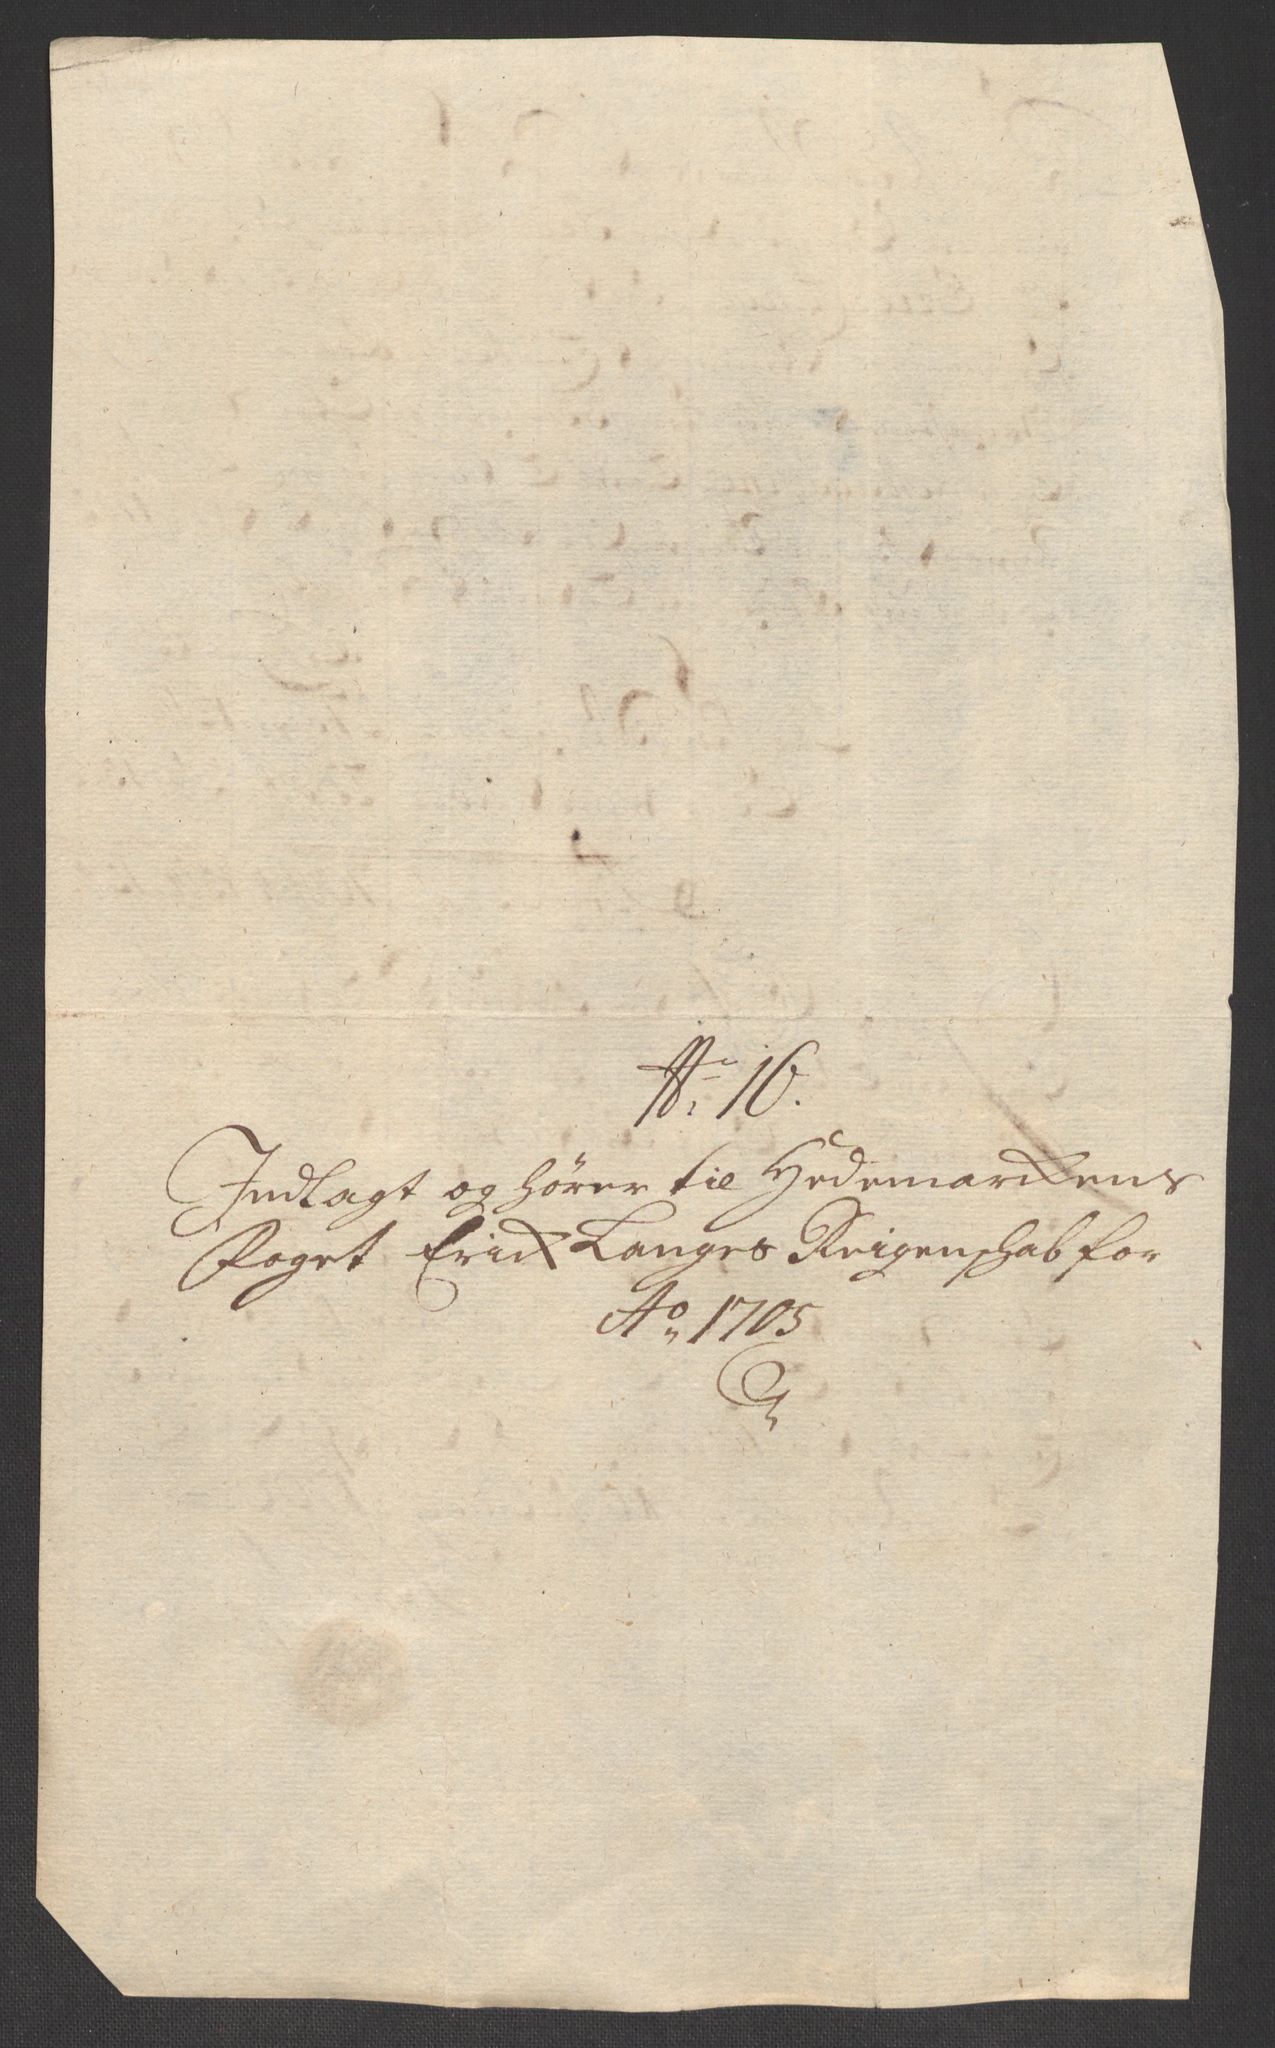 No. 16.
Indlagt og hører til Hedemarckens
Foget Erick Langes Reigenschab for
Ao 1705